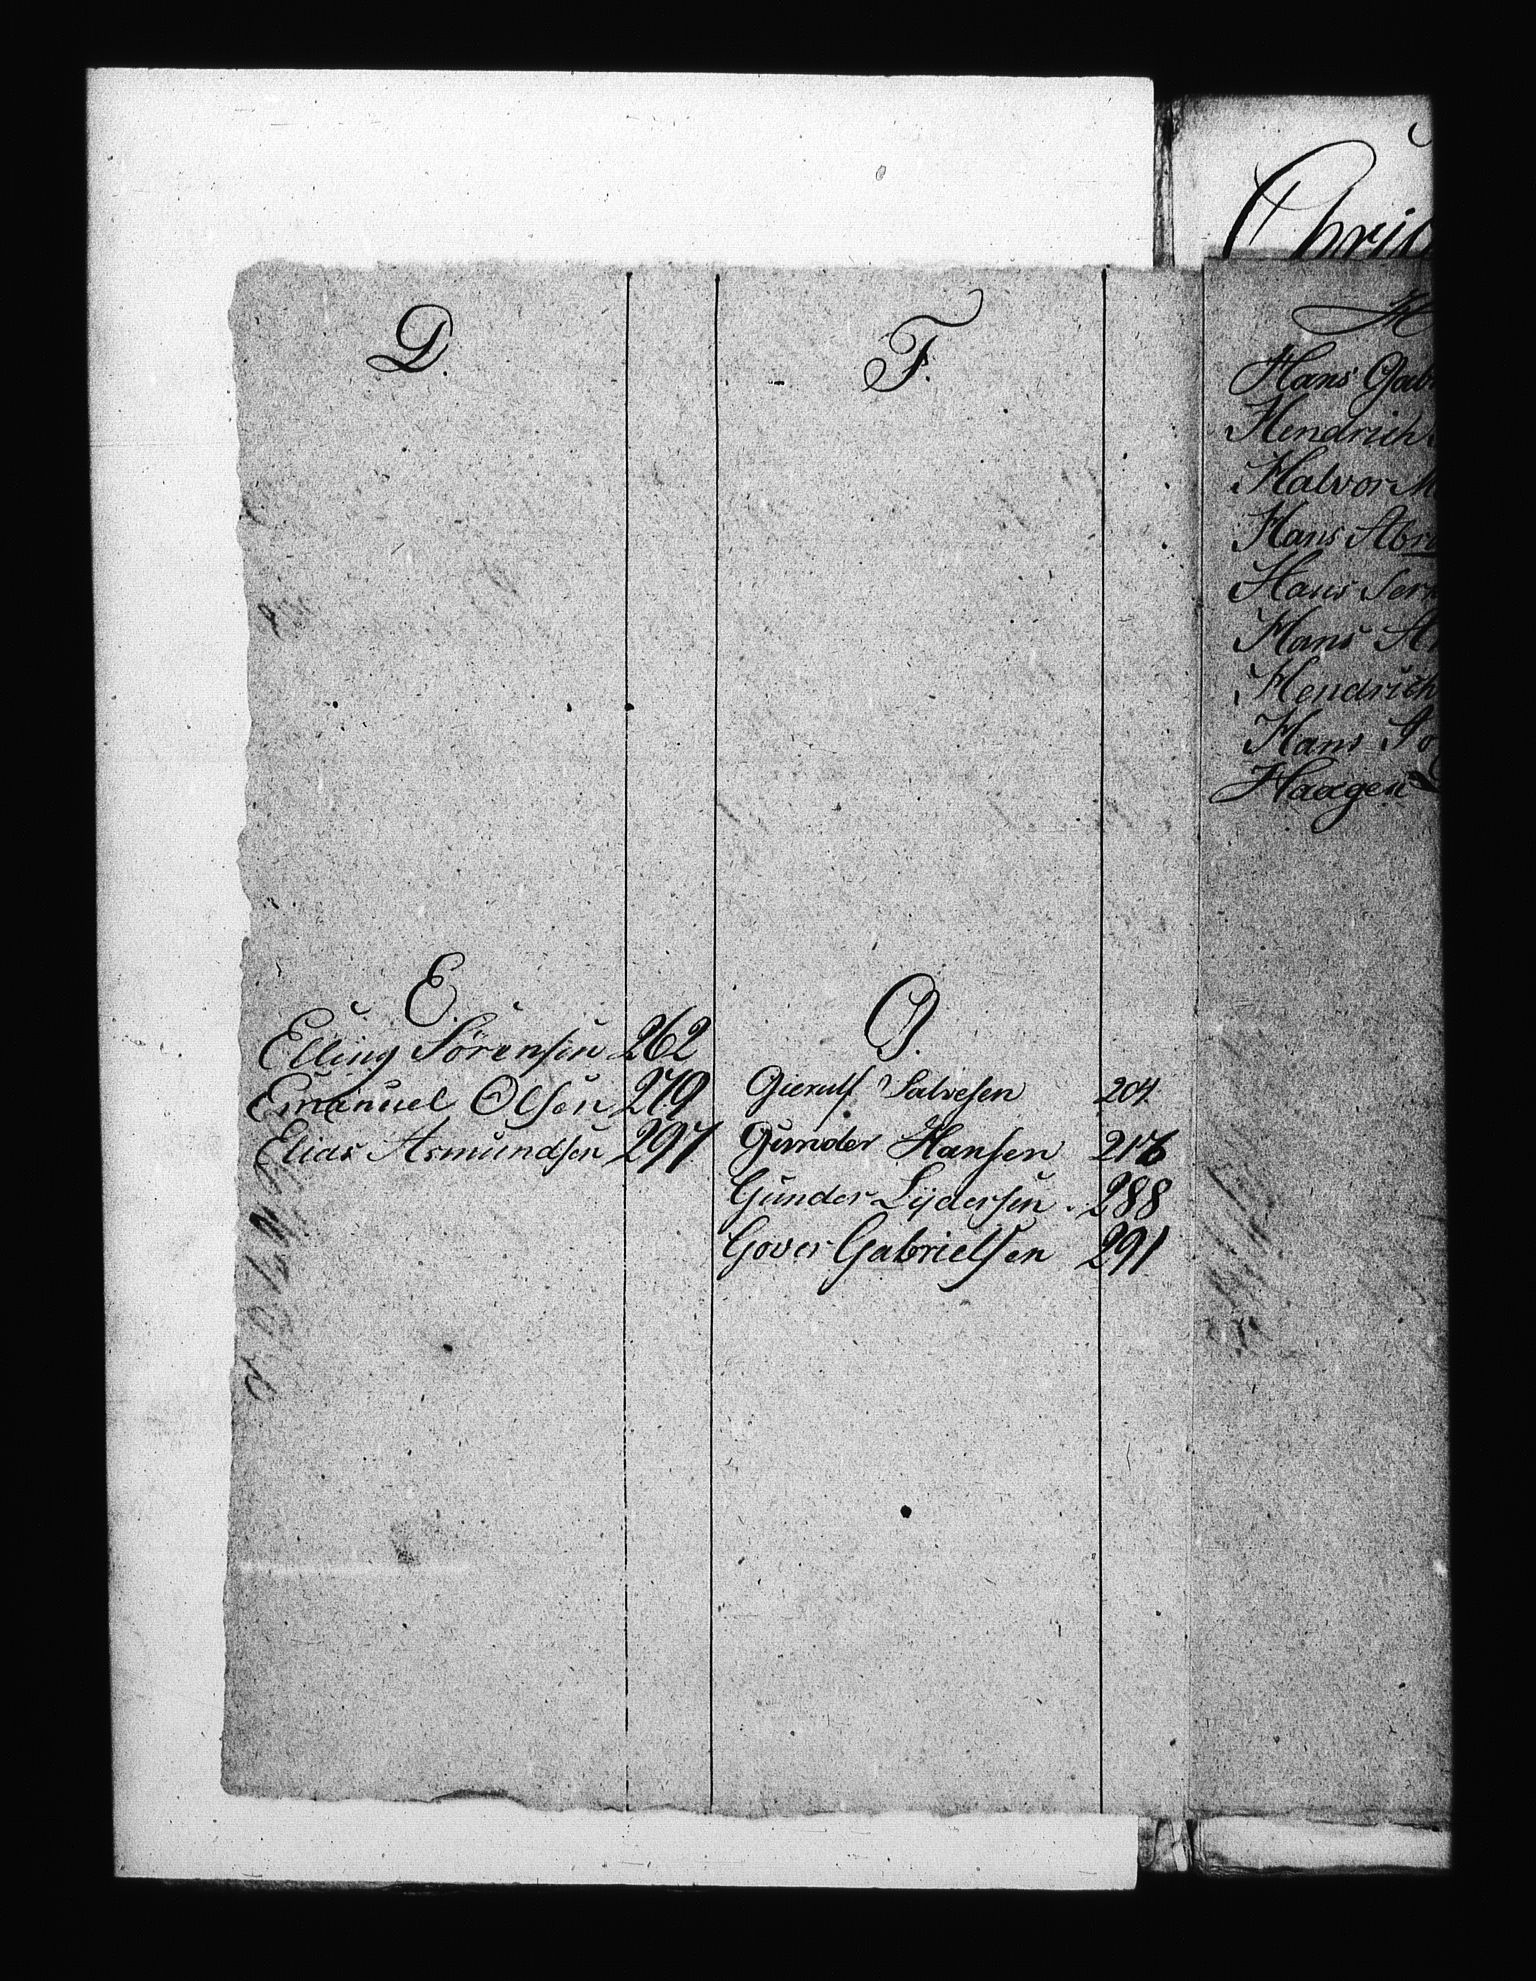 D.
E.
Elling Sörensen 262
Emanuel Olsen 279
Elias Asmundsen 297
F.
G.
Gierulf Salvesen 204
Gunder Hansen
Gunder Lÿdersen 288
Gover Gabrielsen 291
H
Hans
Hendrich
Halvor
Hans
Hans
Hans
Hendrich
Hans
Haagen